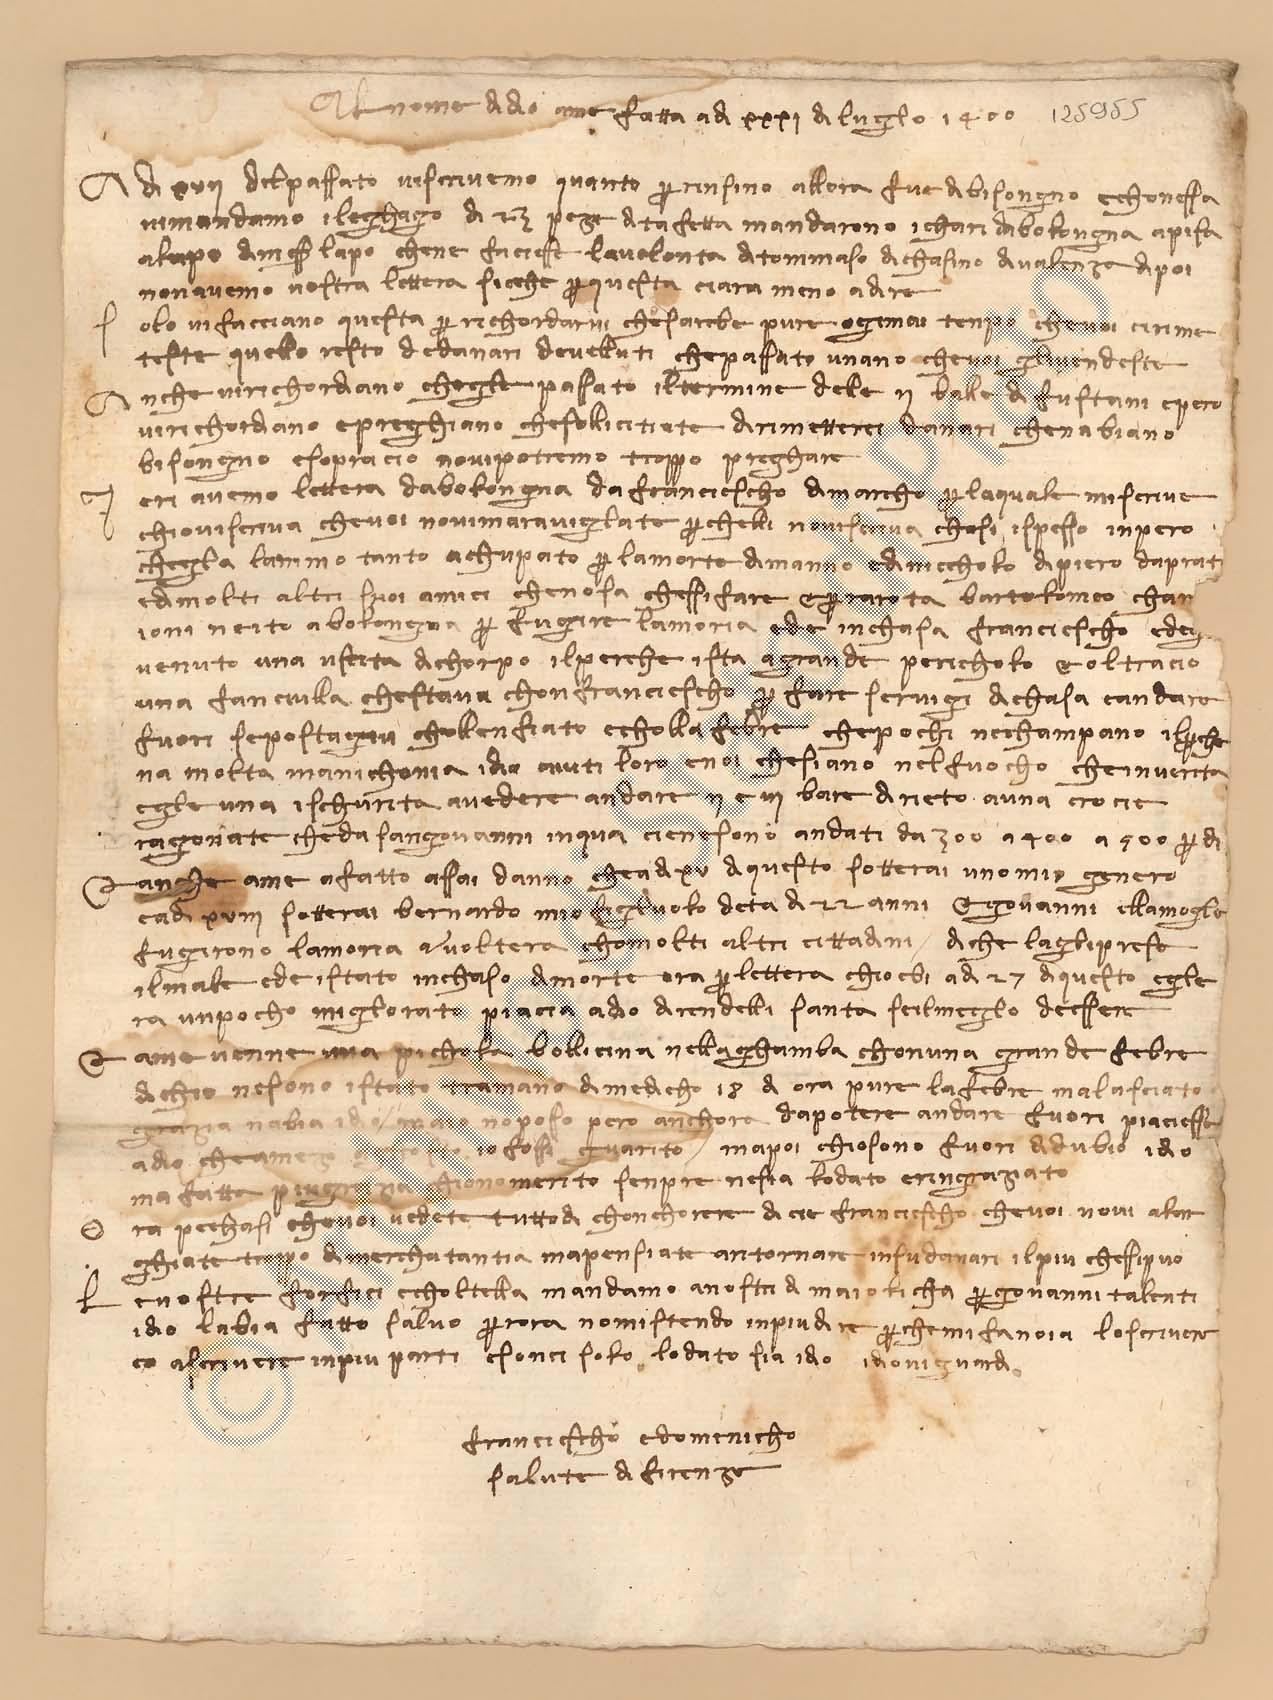 Al nome di dio ame fatta a di xxxi di luglo 1400 125955
A di xvii del passato vi scrivemo quanto per insino allora fue di bisongno e chon essa
vi mandamo i leghago di 23 peze di tafetta mandarono i chari da bolongna a pisa
a lapo di mess lapo che ne faciesse la volonta di tommaso di chasino di valenza di poi
non avemo vostra lettera sicche per questa ci ara meno a dire
Solo vi facciano questa per richordarvi che sarebe pure ogimai tenpo che voi ci rime
teste quello resto de danari de velluti che passato un ano che voi gli vendeste
Anche vi richordiano chegle passato il termine dele ii balle di fustani e pero
vi richordiano e preghiano che sollicitiate di rimetterci danari che n abiano
bisongno e sopra cio no vi potremo troppo preghare
Ieri avemo lettera da bolongna da franciescho di marcho per la quale mi scrive
ch io vi scriva che voi no vi maravigliate perch elli no vi scriva chosi ispesso inpero
ch egl a l animo tanto achupato per la morte di manno e di niccholo di piero da prat
e di molti altri suoi amici che no sa che ssi fare e per rarota bartolomeo chan
ioni n e ito a bolongna per fugire la moria ed e in chasa franciescho ed egl
venuto una uscita di chorpo il perche ista a grande pericholo e oltracio
una fanciulla che stava chon franciescho per fare servigi di chasa e andare
fuori se posta giu chollenfiato e cholla febre che pochi ne champano il perche
n a molta manichonia idio aiuti loro e noi che siano nel fuocho che in verita
egle una ischurita a vedere andare ii e iii bare dirieto a una crocie
ragonate che da san govanni in qua ciene sono andati da 300 a 400 a 500 per di
E anche a me a fatto assai danno che a di xv di questo sotterai uno mio genero
e a di xviii sotterai bernardo mio figluolo d eta di 22 anni e govanni e lla mogle
fugirono la moria a voltera cho molti altri cittadini / di che la gli prese
il male ed e istato in chaso di morte ora per lettera ch io ebi a di 27 di questo egle
ra un pocho miglorato piacia a dio di rendelli santa se il meglo de essere
E a me venne una pichola bollicina nella ghamba chon una grande febre
di ch io ne sono istato tra mano di medicho 18 di ora pure la febre m a lasciato
grazia n abia idio / ma io no poso pero anchora da potere andare fuori piaciesse
a dio che a mezo agosto io fossi guarito / ma poi ch io sono fuori di dubio idio
m a fatte piu grazia ch io no merito senpre ne sia lodato e ringraziato
Ora perch asi che voi vedete tutto di chonchorere di cie franciescho che voi no vi alar
ghiate troppo di merchatantia ma pensiate a ritornare in su danari il piu che ssi puo
Le vostre forfici e choltella mandamo a nostri di maiolicha per govanni talenti
idio l abia fatto salvo per ora no mi stendo in piu dire perche mi fa noia lo scrivere
e o a scrivere in piu parti e sonci solo lodato sia idio idio vi guardi
franciescho e domenicho
salute di firenze